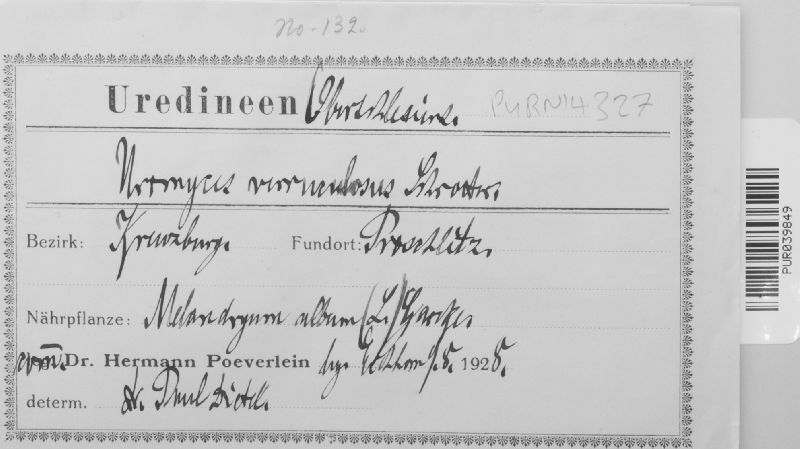 No. 132.
Uredineen Oberschlesiens. PURN14327
Uromyces verruculosus Schroeter.
Bezirk: Kreuzburg. Fundort: Proschlitz.
Nährpflanze: Melandryum album (L.) Garcke.
com. Dr. Hermann Poeverlein leg. 1928.
determ. Dr. Paul Dietel.
PUR039849